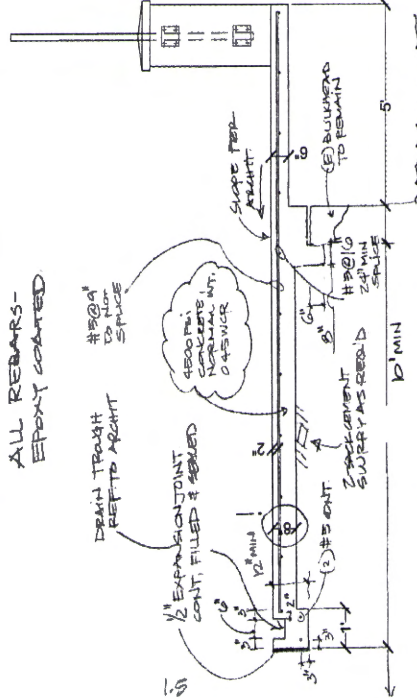 ALL REBARS-
EPOXY COATED
DRAIN TROUGH
REF. TO ARCHIT
1/2" EXPANSION JOINT
CONT, FILLED & SEALED
#5@9"
DO NOT
SPLICE
4500 PSI
CONCRETE
NORMAL WT.
0.45 WCR
SLOPE PER
ARCHIT.
6"
(E) BULKHEAD
TO REMAIN
5'
#5@16
24" MIN
SPLICE
6"
8"
10' MIN
2 SACK CEMENT
SLURRY AS REQ'D
2"
8"
12" MIN
(2) #5 CONT.
3"
6"
3"
2"
1'
3"
3"